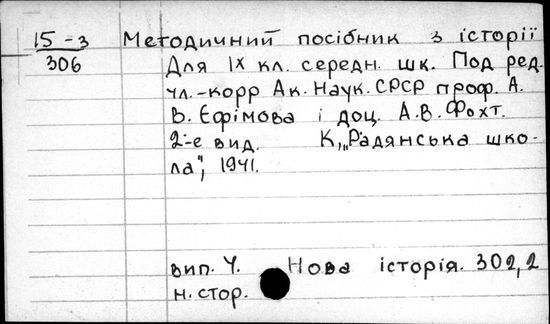 15-3 Методичний посібник з історії
306 Для IX кл. середн. шк. Под ред.
чл.-корр Ак. Наук. СРСР проф. А.
В. Єфімова і доц. А.В. Фохт.
2-е вид. К., „Радянська шко-
ла", 1941.
вип. Ч. Нова історія. 302,2
н. стор.